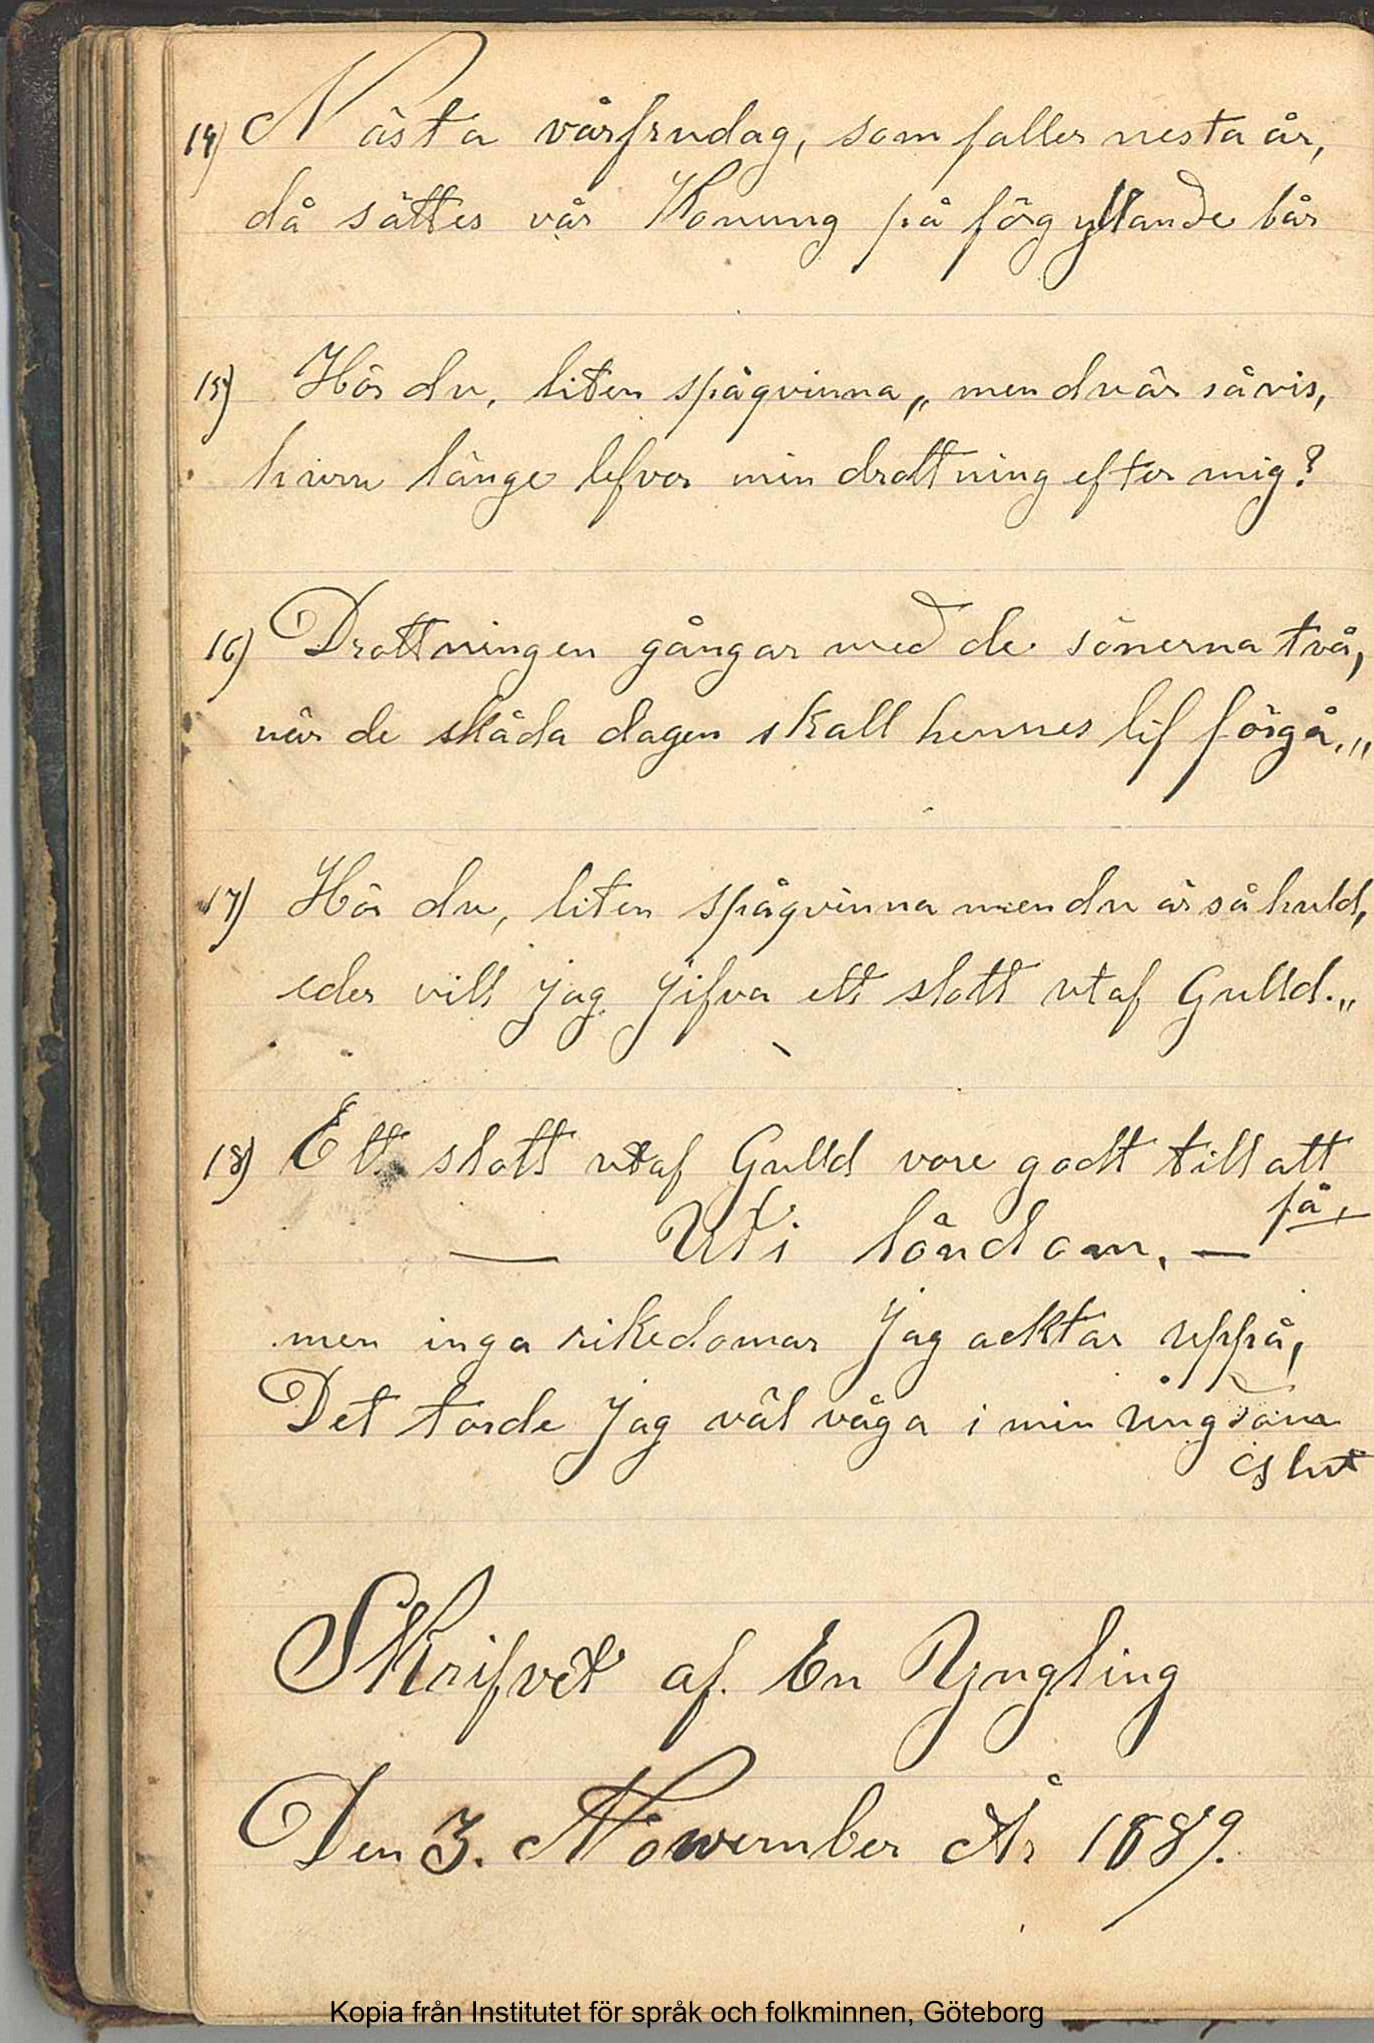 14) Nästa vårfrudag, som faller nesta år,
då sättes vår Konung på förgyllande bår
15) Hör du, liten spåqvinna„ men du är så vis,
huru länge lefver min drottning efter mig?
16) Drottningen gångar med de sönerna två,
när de skåda dagen skall hennes lif förgå.„
17) Hör du, liten spåqvinna men du är så huld,
eder vill jag jifva ett slott utaf Gulld.„
18) Ett slott utaf Gulld vore godt till att
få,
— Uti löndom, —
men inga rikedomar jag acktar uppå,
Det torde jag väl våga i min ungdom
slut
Skrifvet af. En Yngling
Den 3. November År 1889.
Kopia från Institutet för språk och folkminnen, Göteborg